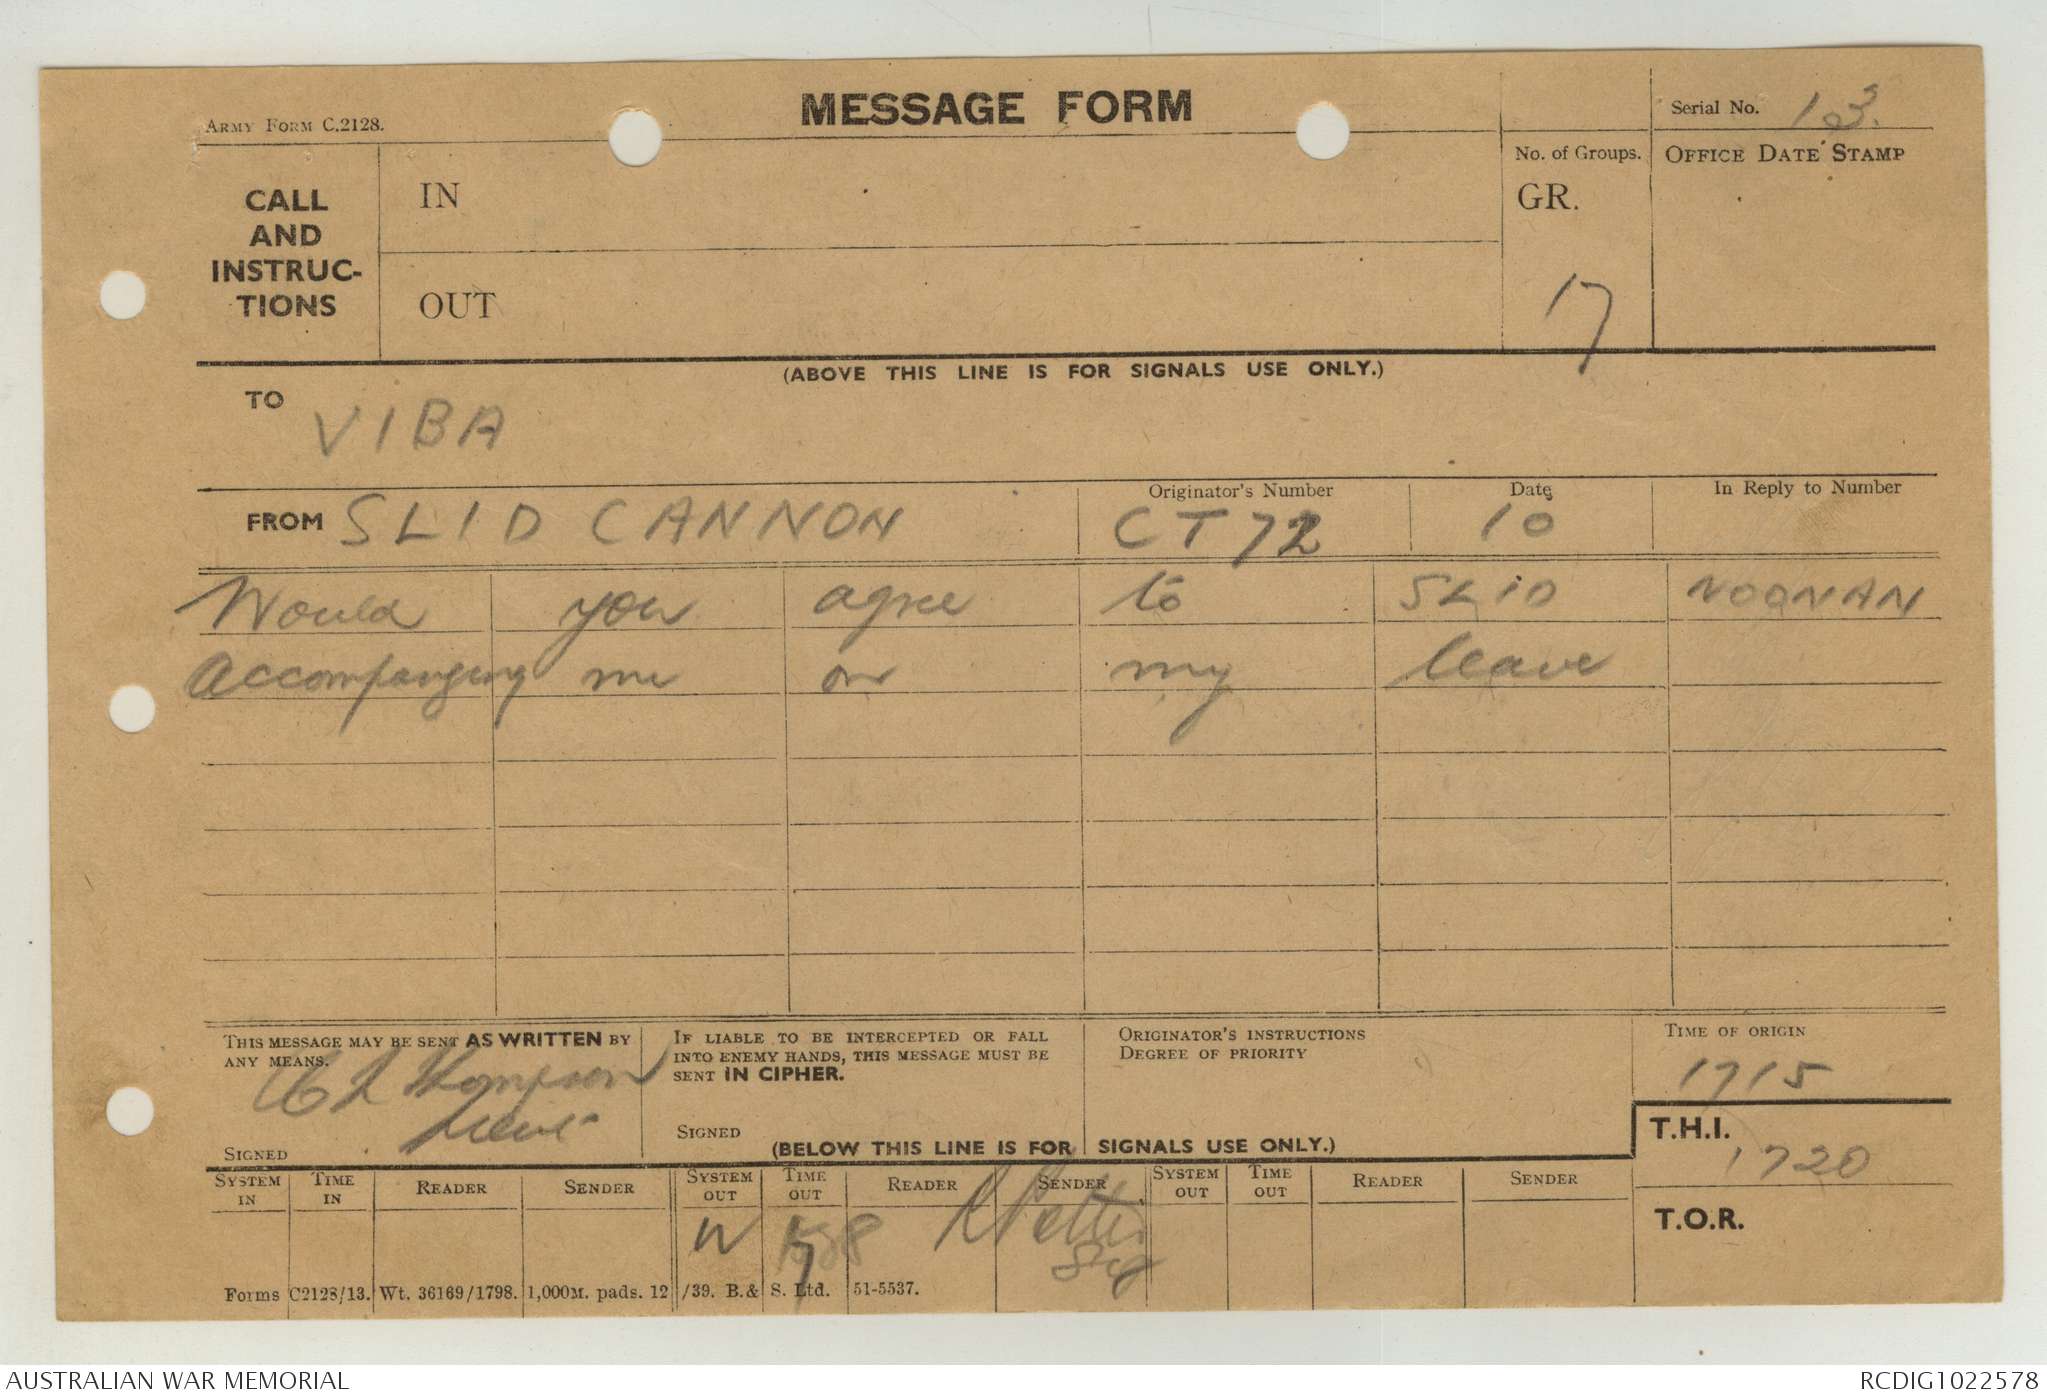 ARMY FORM C.2128.
MESSAGE FORM
Serial No. 103.
CALL AND INSTRUC-TIONS
IN
OUT
No. of Groups.
GR.
17
OFFICE DATE STAMP
(ABOVE THIS LINE IS FOR SIGNALS USE ONLY.)
TO VIBA
FROM SLID CANNON
Originator's Number
CT72
Date
10
In Reply to Number
Would you agree to SLID NOONAN
accompanying me on my leave
THIS MESSAGE MAY BE SENT AS WRITTEN BY
ANY MEANS.
Thompson
Lieut
SIGNED
IF LIABLE TO BE INTERCEPTED OR FALL
INTO ENEMY HANDS, THIS MESSAGE MUST BE
SENT IN CIPHER.
SIGNED
ORIGINATOR'S INSTRUCTIONS
DEGREE OF PRIORITY
TIME OF ORIGIN
1715
(BELOW THIS LINE IS FOR SIGNALS USE ONLY.)
T.H.I.
1720
T.O.R.
SYSTEM IN TIME IN READER SENDER SYSTEM OUT TIME OUT READER SENDER SYSTEM OUT TIME OUT READER SENDER
W
Sig
Forms C2128/13. Wt. 36169/1798. 1,000M. pads. 12/39. B.& S. Ltd. 51-5537.
AUSTRALIAN WAR MEMORIAL
RCDIG1022578